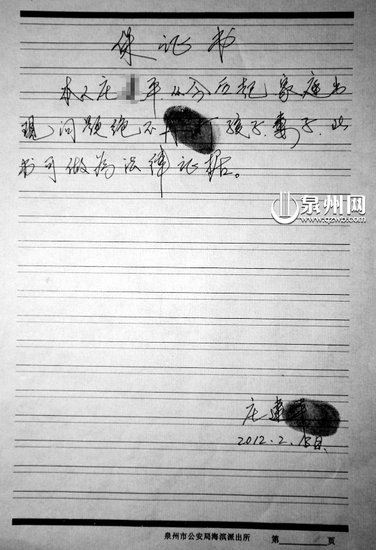 保证书
本人庄 军从今后起家庭出
现问题绝不 孩子妻子.此
书可做为法律证据。
泉州网
www.qzwb.com
庄建军
2012.2.15日.
泉州市公安局海滨派出所 第 页